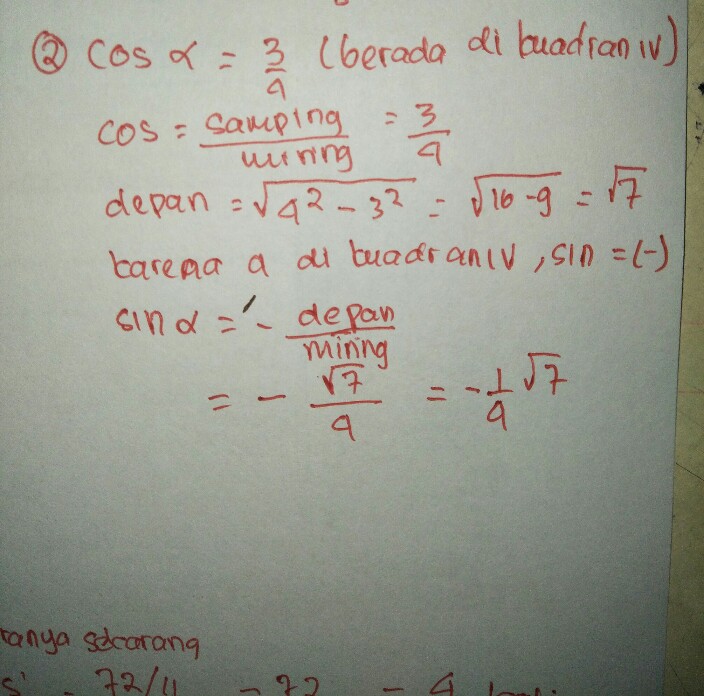 ② cos α = 3/4 (berada di kuadran IV)
cos = samping/miring = 3/4
depan = √4² - 3² = √16 - 9 = √7
karena a di kuadran IV, sin = (-)
sin α = - depan/miring
= - √7/4 = - 1/4 √7
ranya sekarang
72/4 = 72 = 4